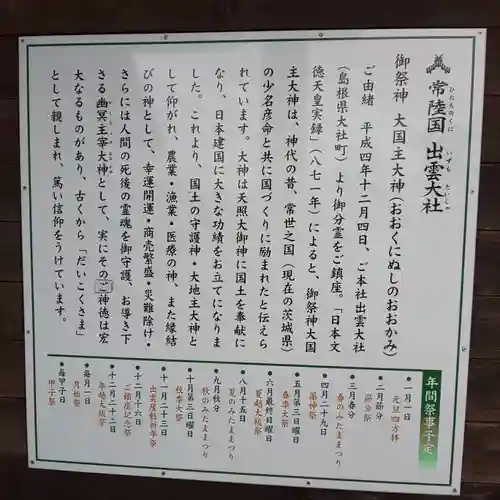 常陸国 出雲大社
ひたちのくに いずもたいしゃ
御祭神 大国主大神(おおくにぬしのおおかみ)
ご由緒 平成四年十二月四日、ご本社出雲大社
(島根県大社町)より御分霊をご鎮座。「日本文
徳天皇実録」(八七一年)によると、御祭神大国
主大神は、神代の昔、常世之国(現在の茨城県)
の少名彦命と共に国づくりに励まれたと伝えら
れています。大神は天照大御神に国土を奉献に
なり、日本建国に大きな功績をお立てになりま
した。これより、国土の守護神・大地主大神と
して仰がれ、農業・漁業・医療の神、また縁結
びの神として、幸運開運・商売繁盛・災難除け・
さらには人間の死後の霊魂を御守護、お導き下
さる幽冥主宰大神として、実にそのご神徳は宏
大なるものがあり、古くから「だいこくさま」
として親しまれ、篤い信仰をうけています。
年間祭事予定
●一月一日
元旦四方拝
●二月節分
節分祭
●三月春分
春のみたままつり
●四月二十九日
薬神祭
●五月第三日曜日
春季大祭
●六月最終日曜日
夏越大祓祭
●八月十五日
夏のみたままつり
●九月秋分
秋のみたままつり
●十月第三日曜日
秋季大祭
●十一月二十三日
出雲屋敷新年祭
●十二月十六日
ご鎮座記念祭
●十二月二十二日
年越大祓祭
●毎月一日
月始祭
●毎甲子日
甲子祭